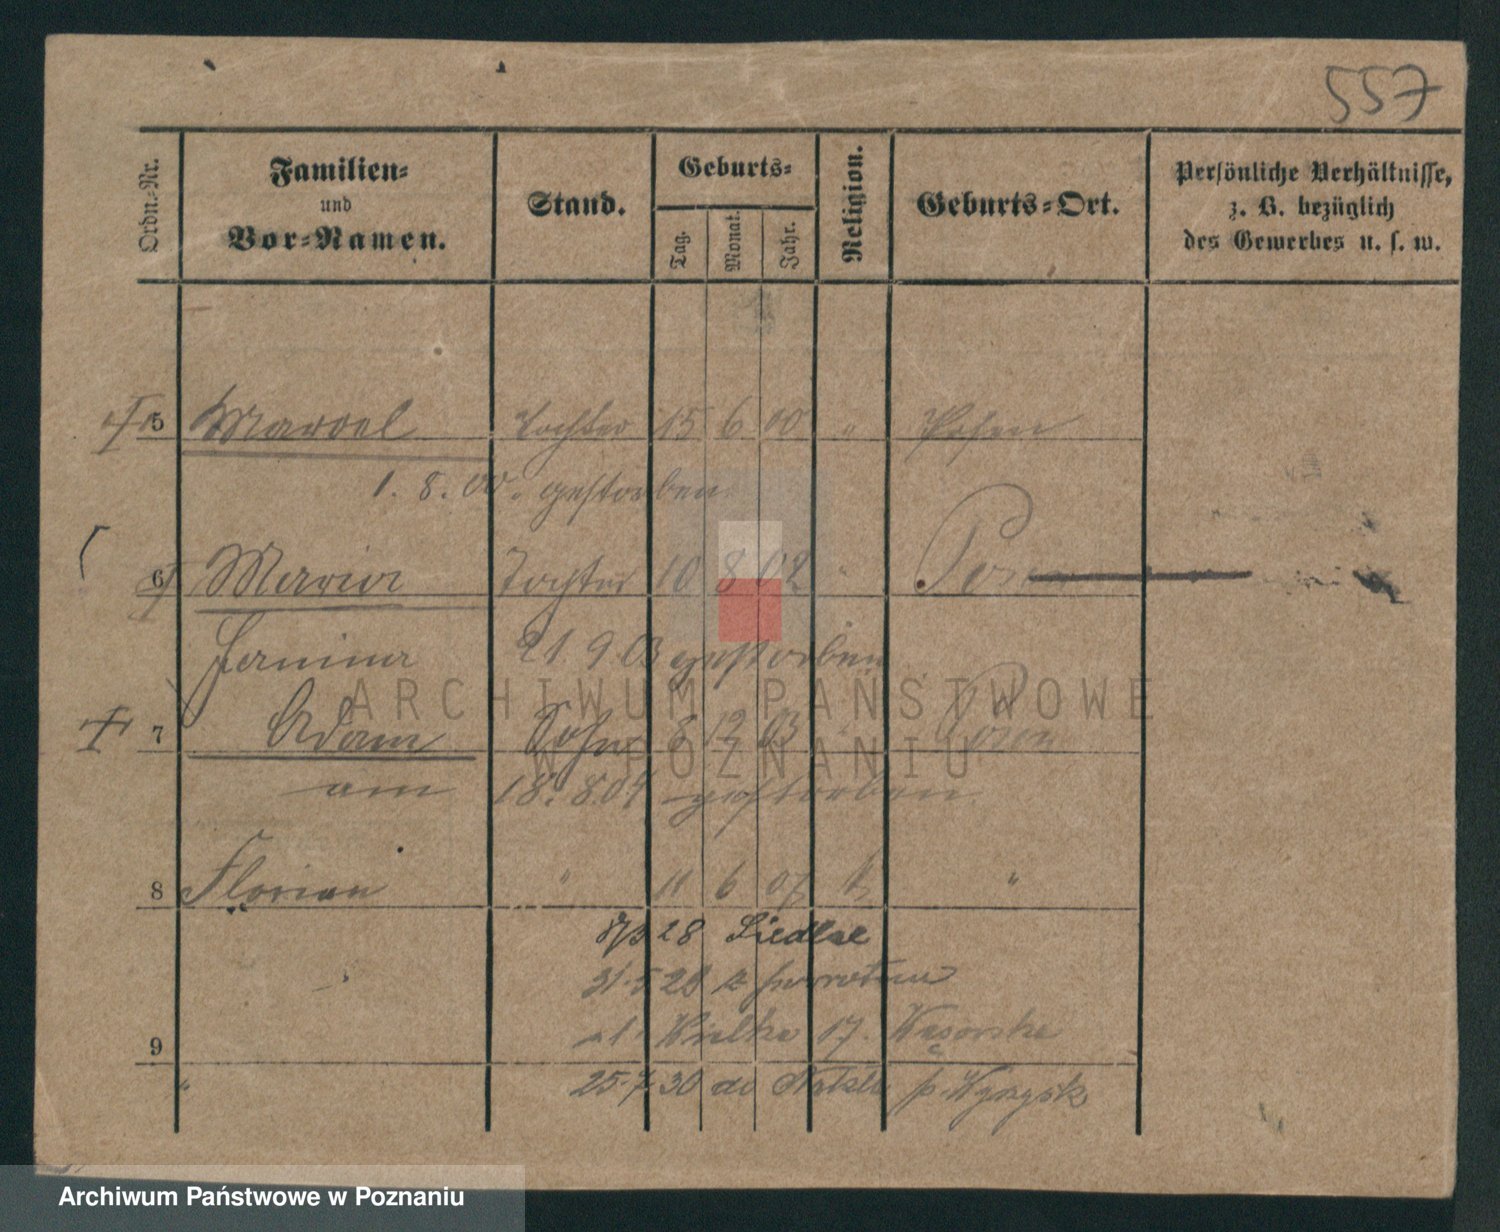 557
Ordn.-Nr.
Familien-
und
Vor-Namen.
Stand.
Geburts-
Tag.
Monat.
Jahr.
Religion.
Geburts-Ort.
Persönliche Verhältnisse,
z. B. bezüglich
des Gewerbes u. s. w.
5 Marcel Tochter 15 6 00 " Posen
1. 8. 00. gestorben
6 Maria Tochter 10 8 02 " Posen
Janina 21 9 03 gestorben
7 Adam Sohn 8 12 03 " Posen
am 18. 8. 04 gestorben
8 Florian " 11 6 07 k "
28 Siedlce
31.5 28 z powrotem
Wielka 17.
9
25.7 30 do p. Wyrzysk
ARCHIWUM PAŃSTWOWE
W POZNANIU
Archiwum Państwowe w Poznaniu